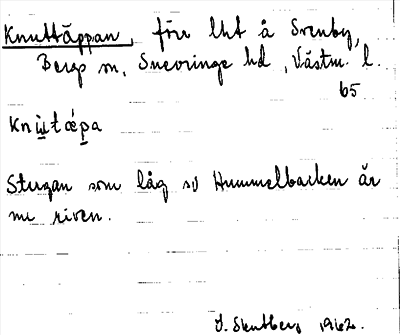 Knuttäppan, förr lht å Svenby,
Bergs sn, Snevringe hd, Västm. l.
65
Knùtǽpa
Stugan som låg sv Hummelbacken är
nu riven.
1962.